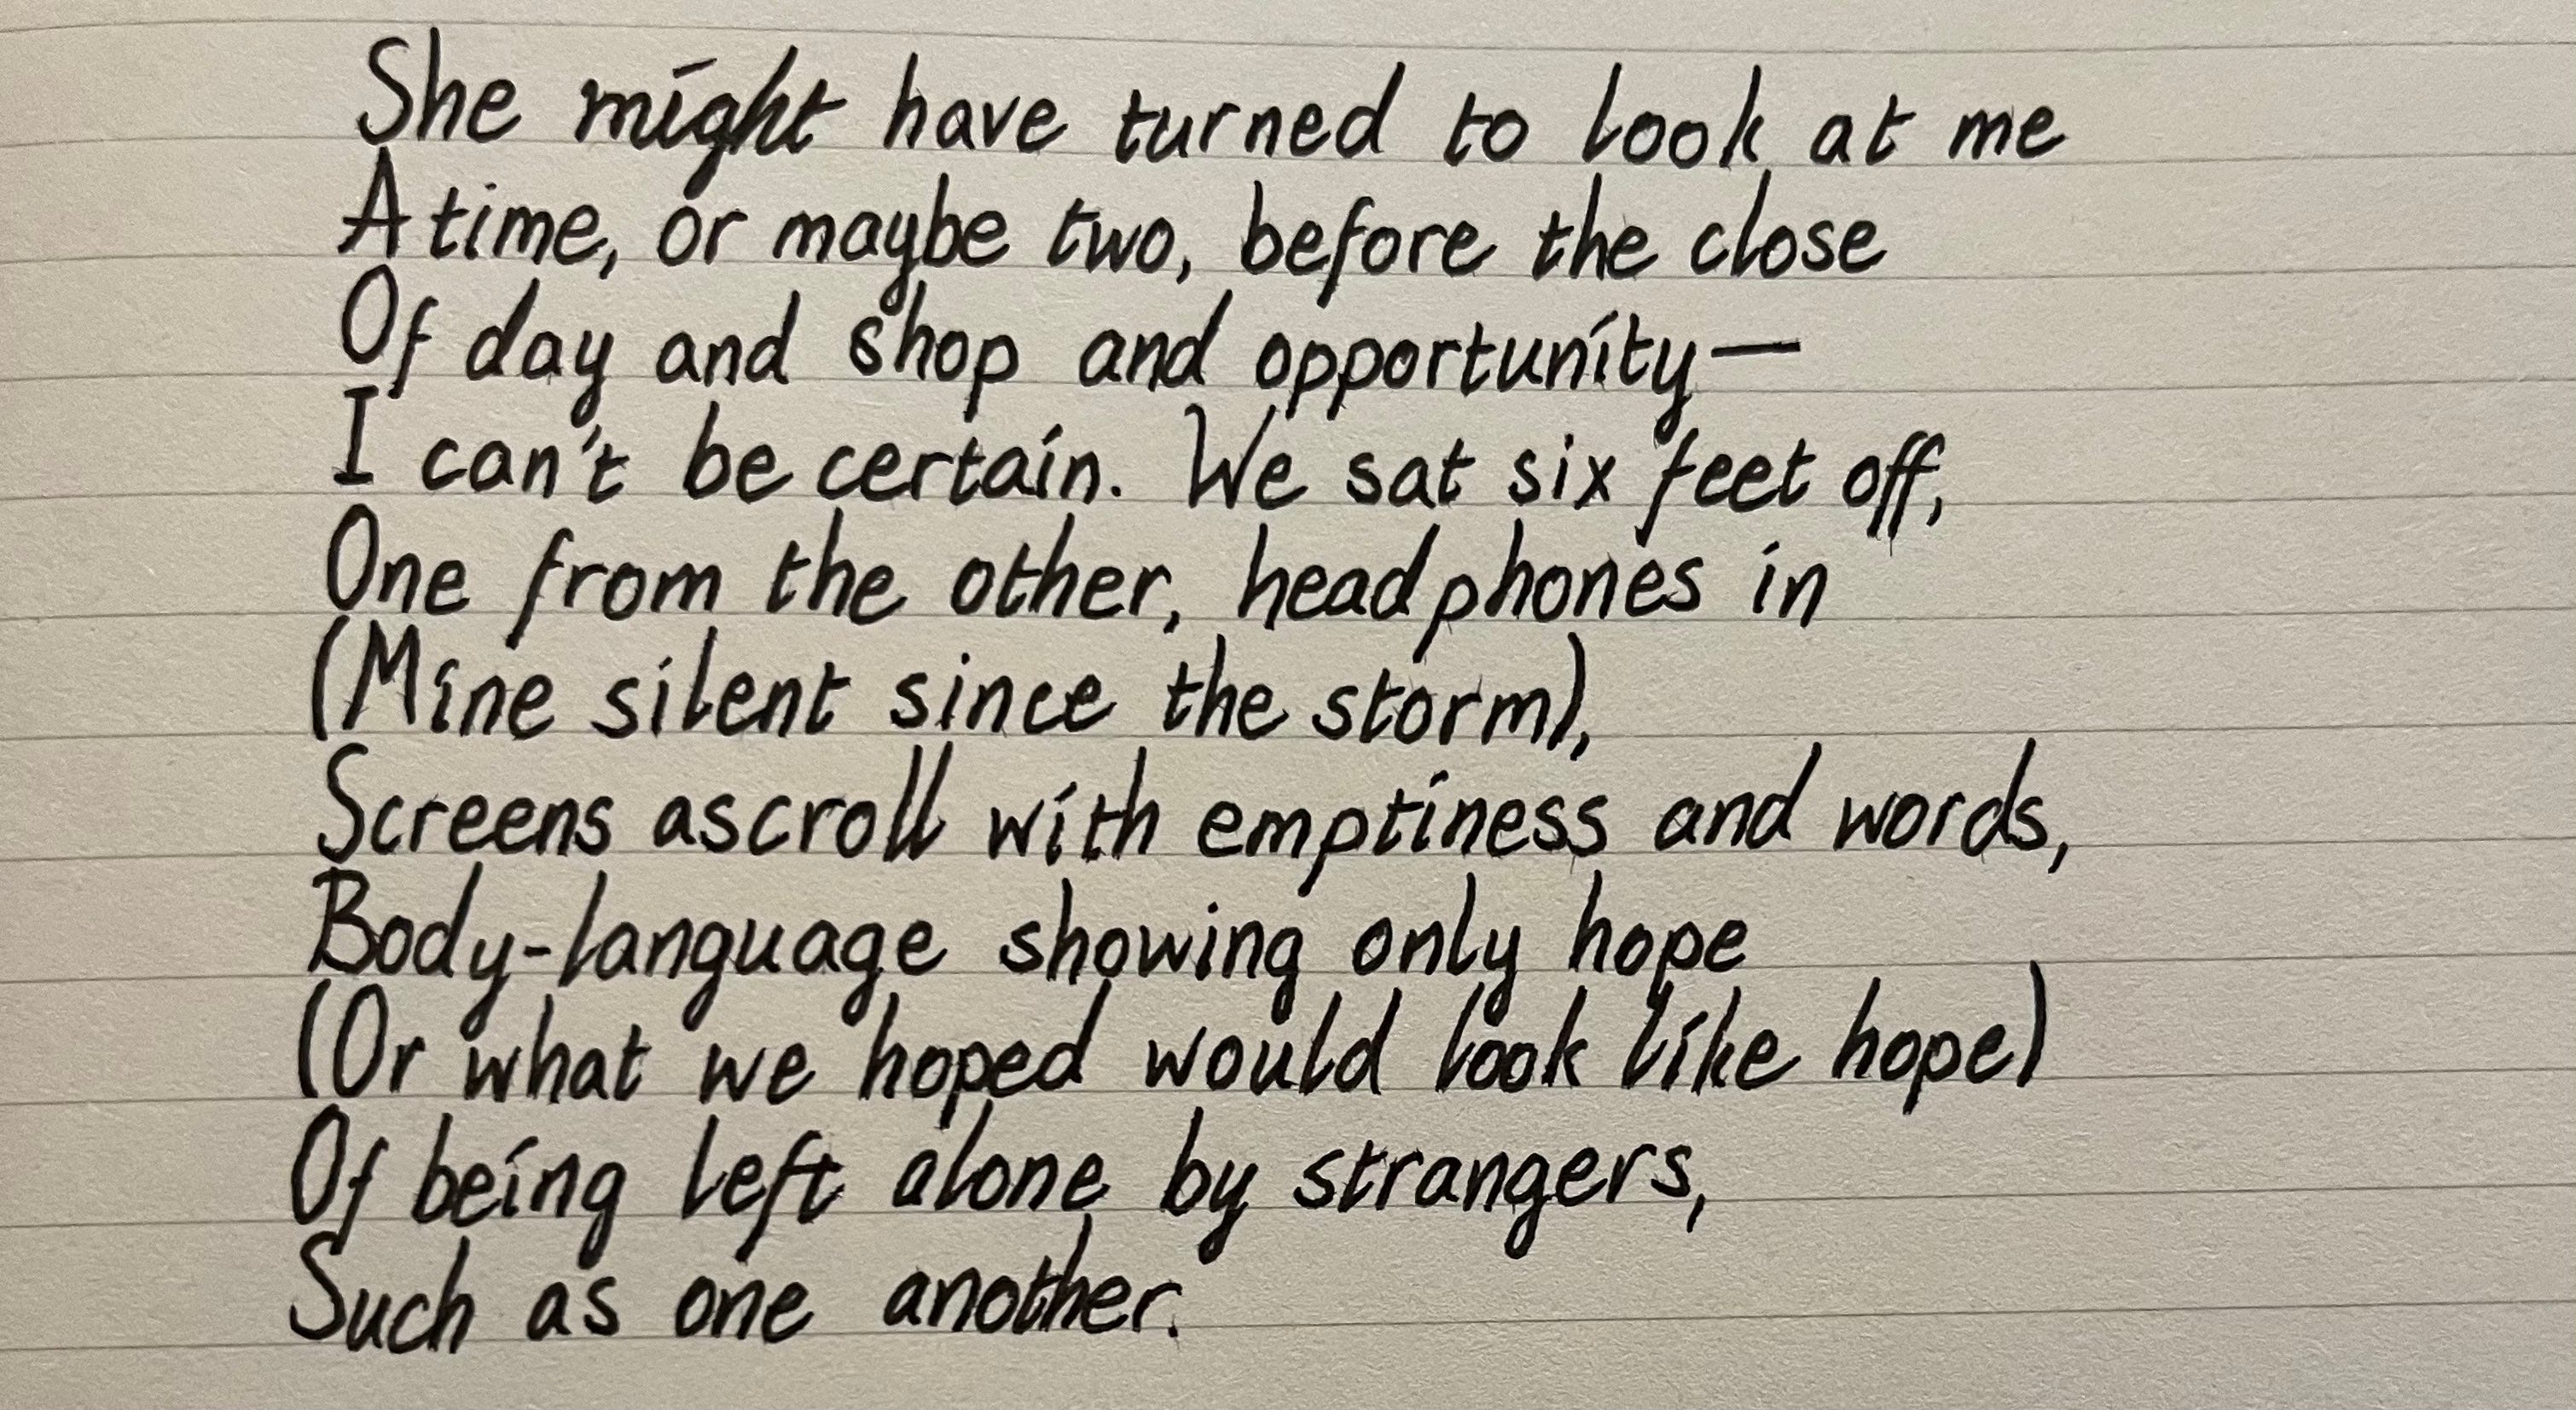 She might have turned to look at me
A time, or maybe two, before the close
Of day and shop and opportunity—
I can't be certain. We sat six feet off,
One from the other, headphones in
(Mine silent since the storm),
Screens ascroll with emptiness and words,
Body-language showing only hope
(Or what we hoped would look like hope)
Of being left alone by strangers,
Such as one another.